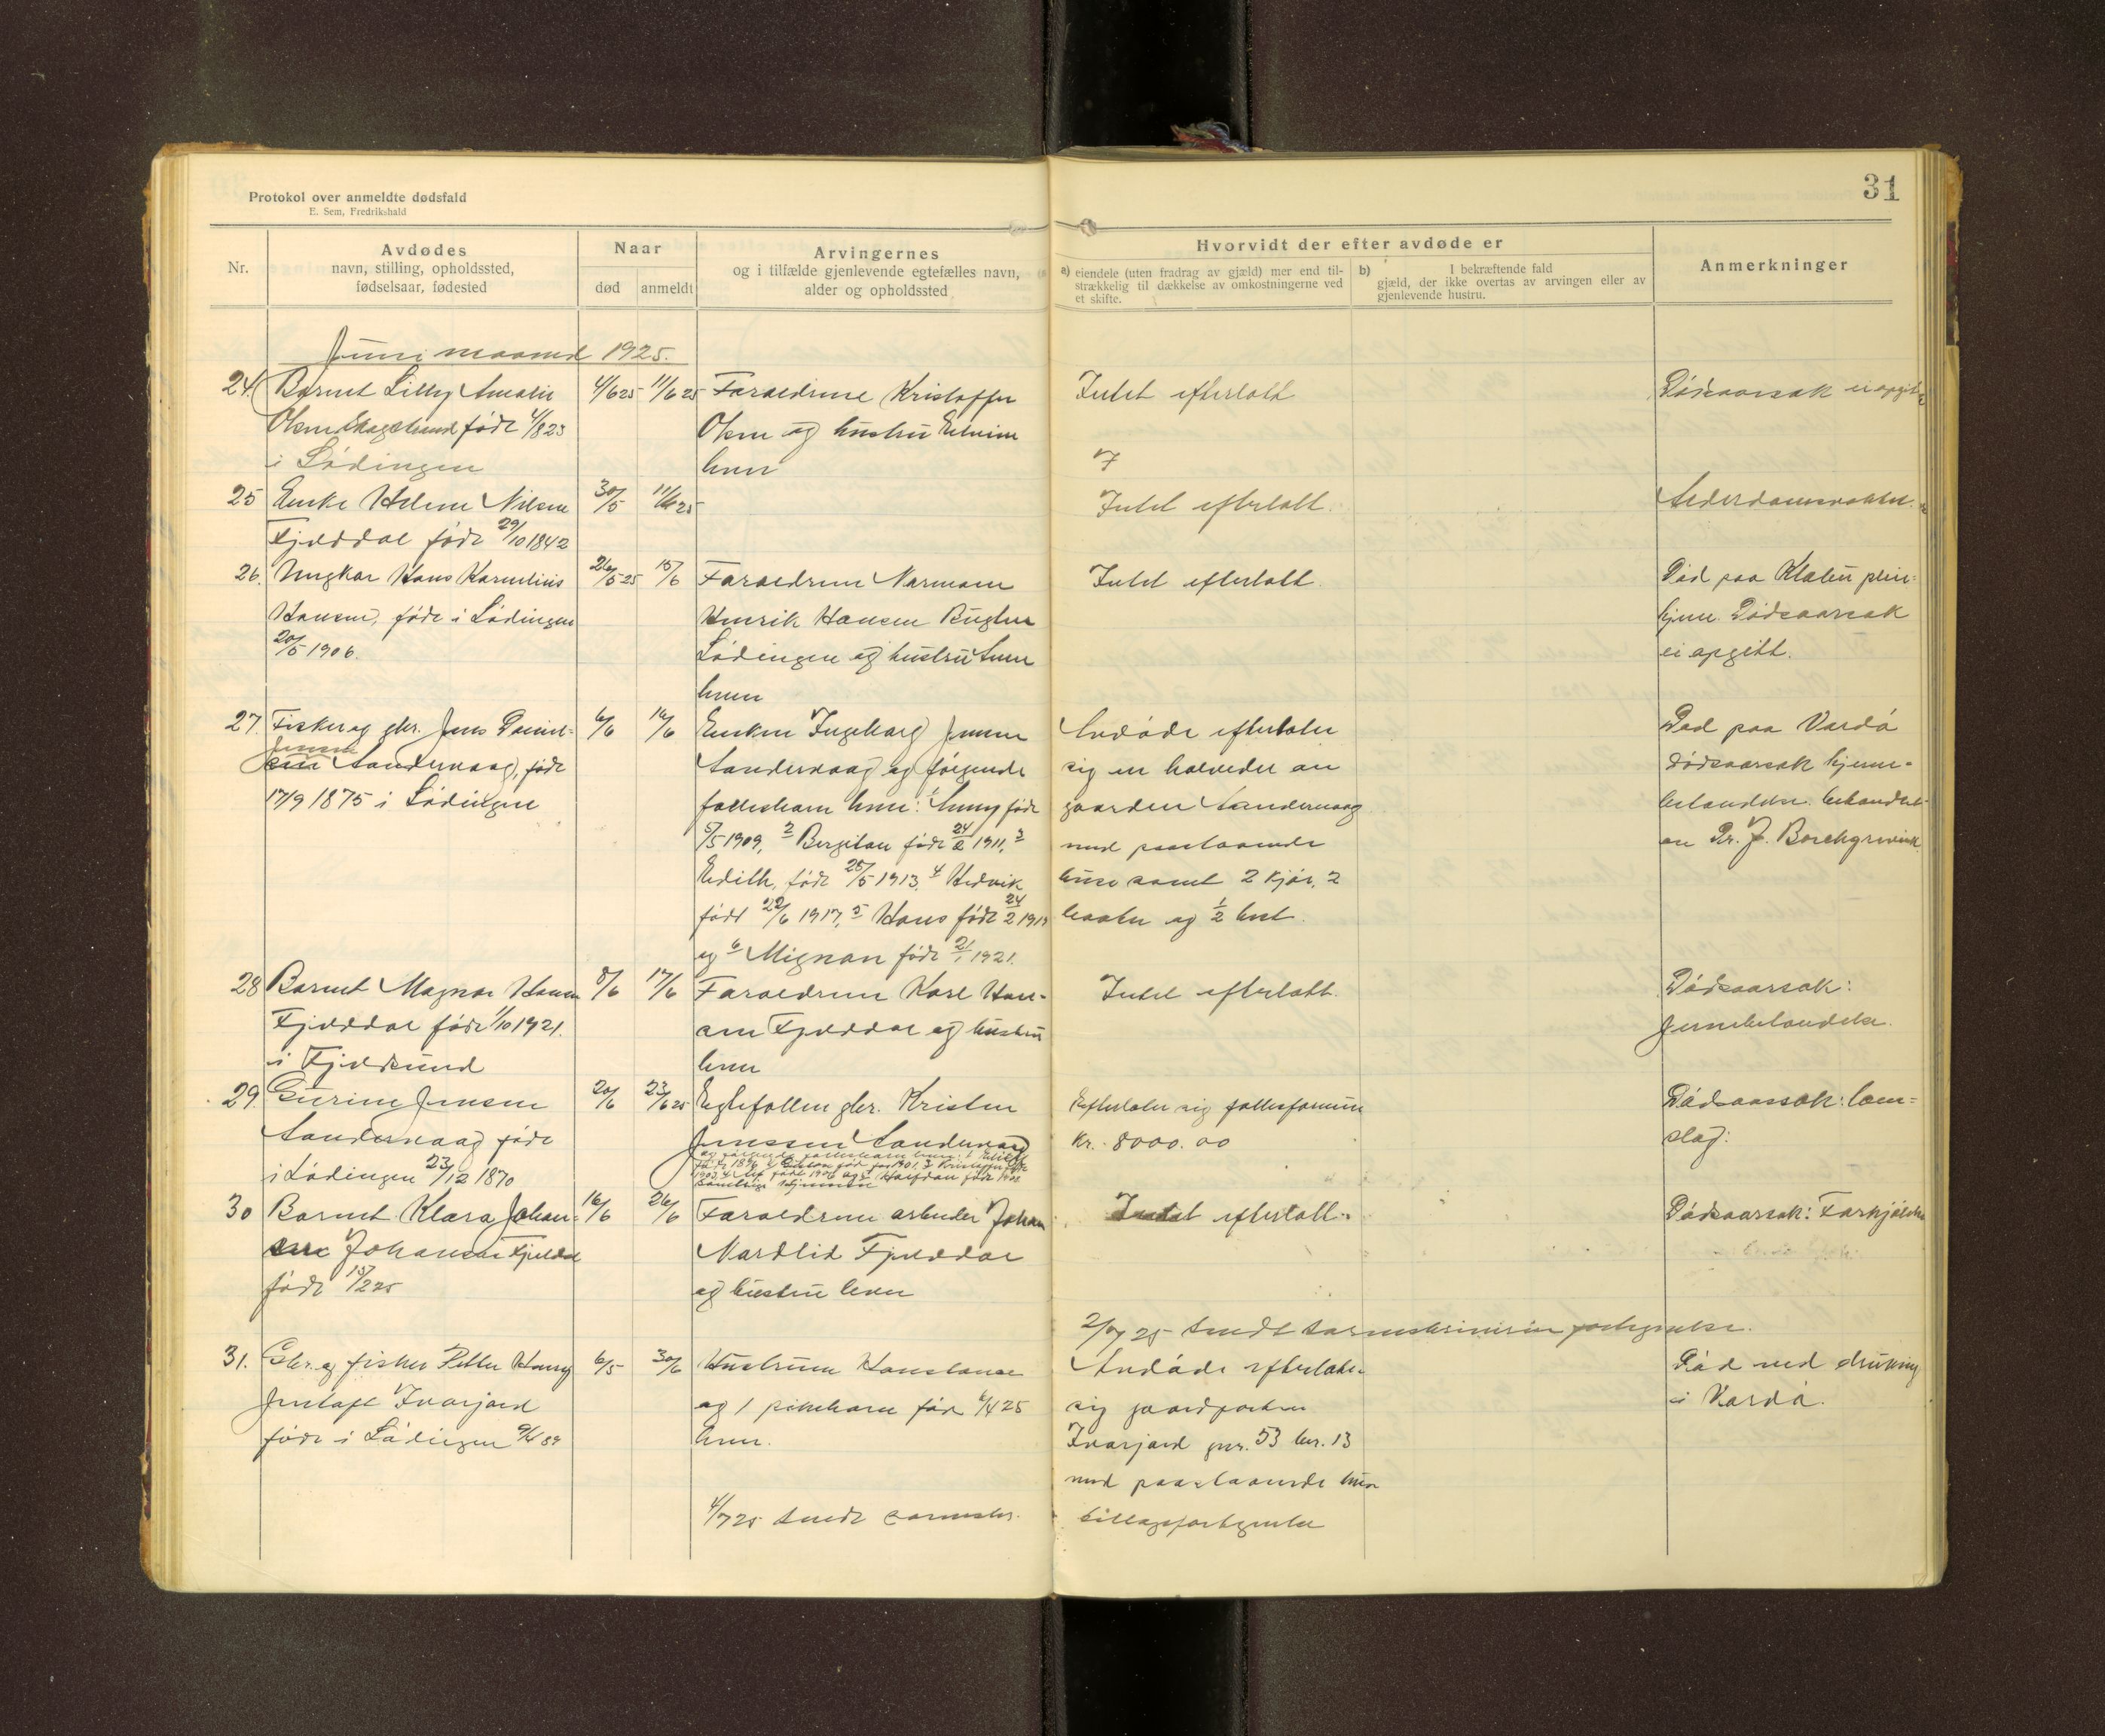 31
Protokol over anmeldte dødsfald
E. Sem, Fredrikshald
Nr.
Avdødes
navn, stilling, opholdssted,
fødselsaar, fødested
Naar
død
anmeldt
Arvingernes
og i tilfælde gjenlevende egtefælles navn,
alder og opholdssted
Hvorvidt der efter avdøde er
a) eiendele (uten fradrag av gjæld) mer end til-
strækkelig til dækkelse av omkostningerne ved
et skifte.
b) I bekræftende fald
gjæld, der ikke overtas av arvingen eller av
gjenlevende hustru.
Anmerkninger
Juni maaned 1925.
24. Barnet Lilly Amalie
Olsen født 4/8 23
i Lødingen
4/6 25
11/6 25
Forældrene Kristoffer
Olsen og hustru
her
Intet efterlatt
Dødsaarsak ei opgit
25 Enke Helene Nilsen
Fjelddal født 29/10 1842
30/5
11/6 25
Intet efterlatt.
Alderdomssvakhet.
26. Ungkar Hans Kornelius
Hansen, født i Lødingen
20/5 1906.
26/5 25
15/6
Forældrene Normann
Henrik Hansen
Lødingen og hustru
her
Intet efterlatt.
Død paa
Dødsaarsak
ei opgitt.
27. Fisker og gbr. Jens Daniel
Jensen
Sandervaag, født
17/9 1875 i Lødingen
6/6
16/6
Enken Ingeborg Jensen
Sandervaag og følgende
fællesbarn her: 1 Jenny født
5/5 1909, 2 født 24/2 1911, 3
Edith, født 25/5 1913, 4 Hedvik
født 22/6 1917, 5 Hans født 24/2
og 6 Mignon født 21/1 1921.
Avdøde efterlater
sig en halvedel av
gaarden Sandervaag
med paastaaende
huse samt 2 kjør, 2
og 1/2 hest.
Død paa Vardø
dødsaarsak hjerne-
betændelse. behandlet
av Dr. J. Borchgrevink
28 Barnet Magnor Hansen
Fjelddal født 1/10 1921.
i Fjeldsund
8/6
17/6
Forældrene Karl Han-
sen Fjelddal og hustru
her
Intet efterlatt.
Dødsaarsak:
29. Gurine Jensen
Sandervaag født
i Lødingen 23/12 1870
20/6
23/6 25
Egtefællen gbr. Kristen
Jenssen Sandervaag
og følgende fællesbarn her:
Samtlige hjemme
Efterlater sig fællesformue
Kr. 8000.00
Dødsaarsak: lam-
slag.
30 Barnet Klara Johan-
Johansen Fjelddal
født 15/2 25
16/6
26/6
Forældrene arbeider Johan
Nordlid Fjelddal
og hustru her
Intet efterlatt.
Dødsaarsak: Forkjølelse
2/7 25
31. Gbr. og fisker Petter Henry
Jentoft Ivarjord
født i Lødingen
6/5
30/6
Hustruen Konstance
og 1 pikebarn født 25
her.
4/7 25 sendt
Avdøde efterlater
sig gaardparten
Ivarjord gnr. 53 bnr. 13
med paastaaende huse
Død ved drukning
i Vardø.